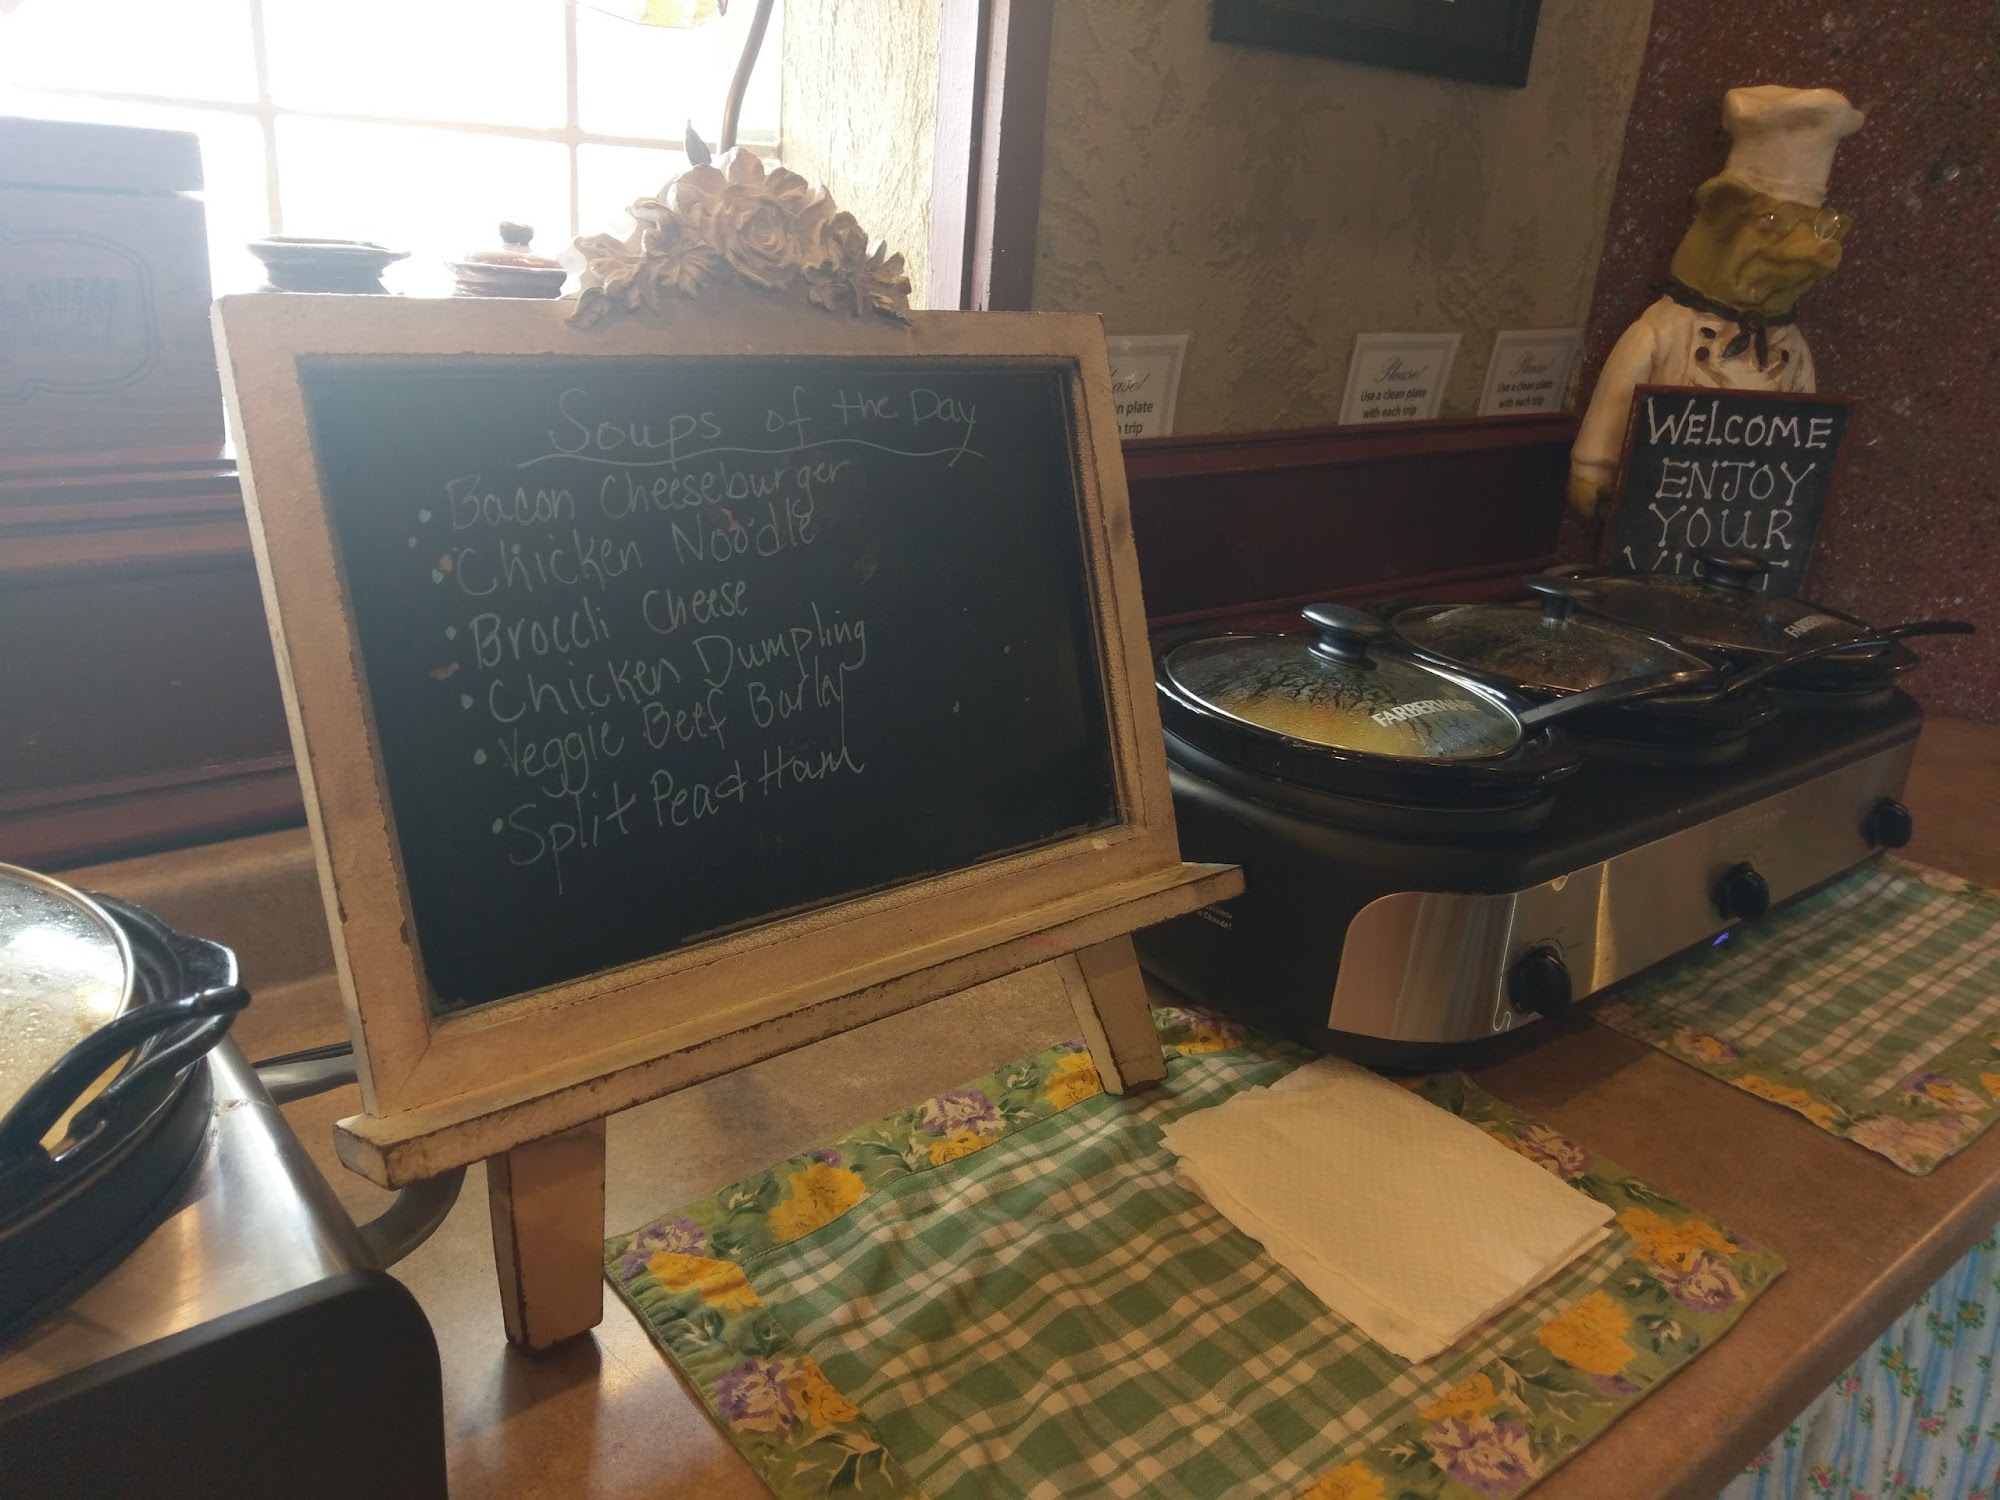 Soups of the Day
• Bacon Cheeseburger
• Chicken Noodle
• Broccli Cheese
• Chicken Dumpling
• Veggie Beef Barley
• Split Pea & Ham
Please!
Use a clean plate
with each trip
Please
Use a clean plate
with each trip
an plate
trip
WELCOME
ENJOY
YOUR
VISIT
FARBERWARE
FARBERWARE